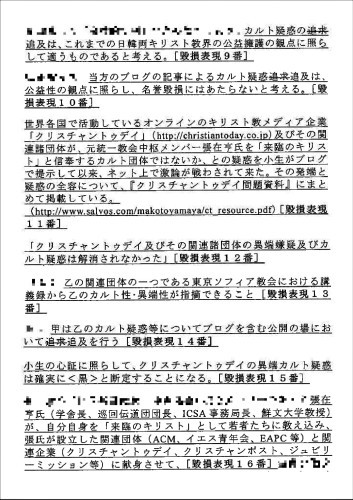 カルト疑惑の追来
追及は、これまでの日韓両キリスト教界の公益擁護の観点に照ら
して適うものであると考える。［毀損表現９番］
当方のブログの記事によるカルト疑惑追来追及は、
公益性の観点に照らし、名誉毀損にはあたらないと考える。［毀
損表現１０番］
世界各国で活動しているオンラインのキリスト教メディア企業
「クリスチャントゥデイ」（http://christiantoday.co.jp）及びその関
連諸団体が、元統一教会中枢メンバー張在亨氏を「来臨のキリス
ト」と信奉するカルト団体ではないか、との疑惑を小生がブログ
で提示して以来、ネット上で激論が戦わされて来た。その発端と
疑惑の全容について、『クリスチャントゥデイ問題資料』にまと
めて掲載している。
（http://www.salvos.com/makotoyamaya/ct_resource.pdf）［毀損表現
１１番］
「クリスチャントゥデイ及びその関連諸団体の異端嫌疑及びカ
ルト疑惑は解消されなかった」［毀損表現１２番］
乙の関連団体の一つである東京ソフィア教会における講
義録から乙のカルト性・異端性が指摘できること［毀損表現１３
番］
甲は乙のカルト疑惑等についてブログを含む公開の場にお
いて追来追及を行う［毀損表現１４番］
小生の心証に照らして、クリスチャントゥデイの異端カルト疑惑
は確実に＜黒＞と断定することになる。［毀損表現１５番］
張在
亨氏（学舎長、巡回伝道団団長、ICSA事務局長、鮮文大学教授）
が、自分自身を「来臨のキリスト」として若者たちに教え込み、
張氏が設立した関連団体（ACM、イエス青年会、EAPC等）と関
連企業（クリスチャントゥデイ、クリスチャンポスト、ジュビリ
ーミッション等）に献身させて、［毀損表現１６番］